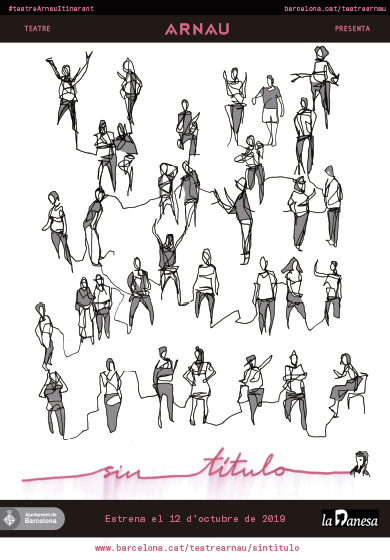 #teatreArnauItinerant
barcelona.cat/teatrearnau
TEATRE
ARNAU
PRESENTA
sin título
Ajuntament de
Barcelona
Estrena el 12 d'octubre de 2019
la Danesa
www.barcelona.cat/teatrearnau/sintitulo